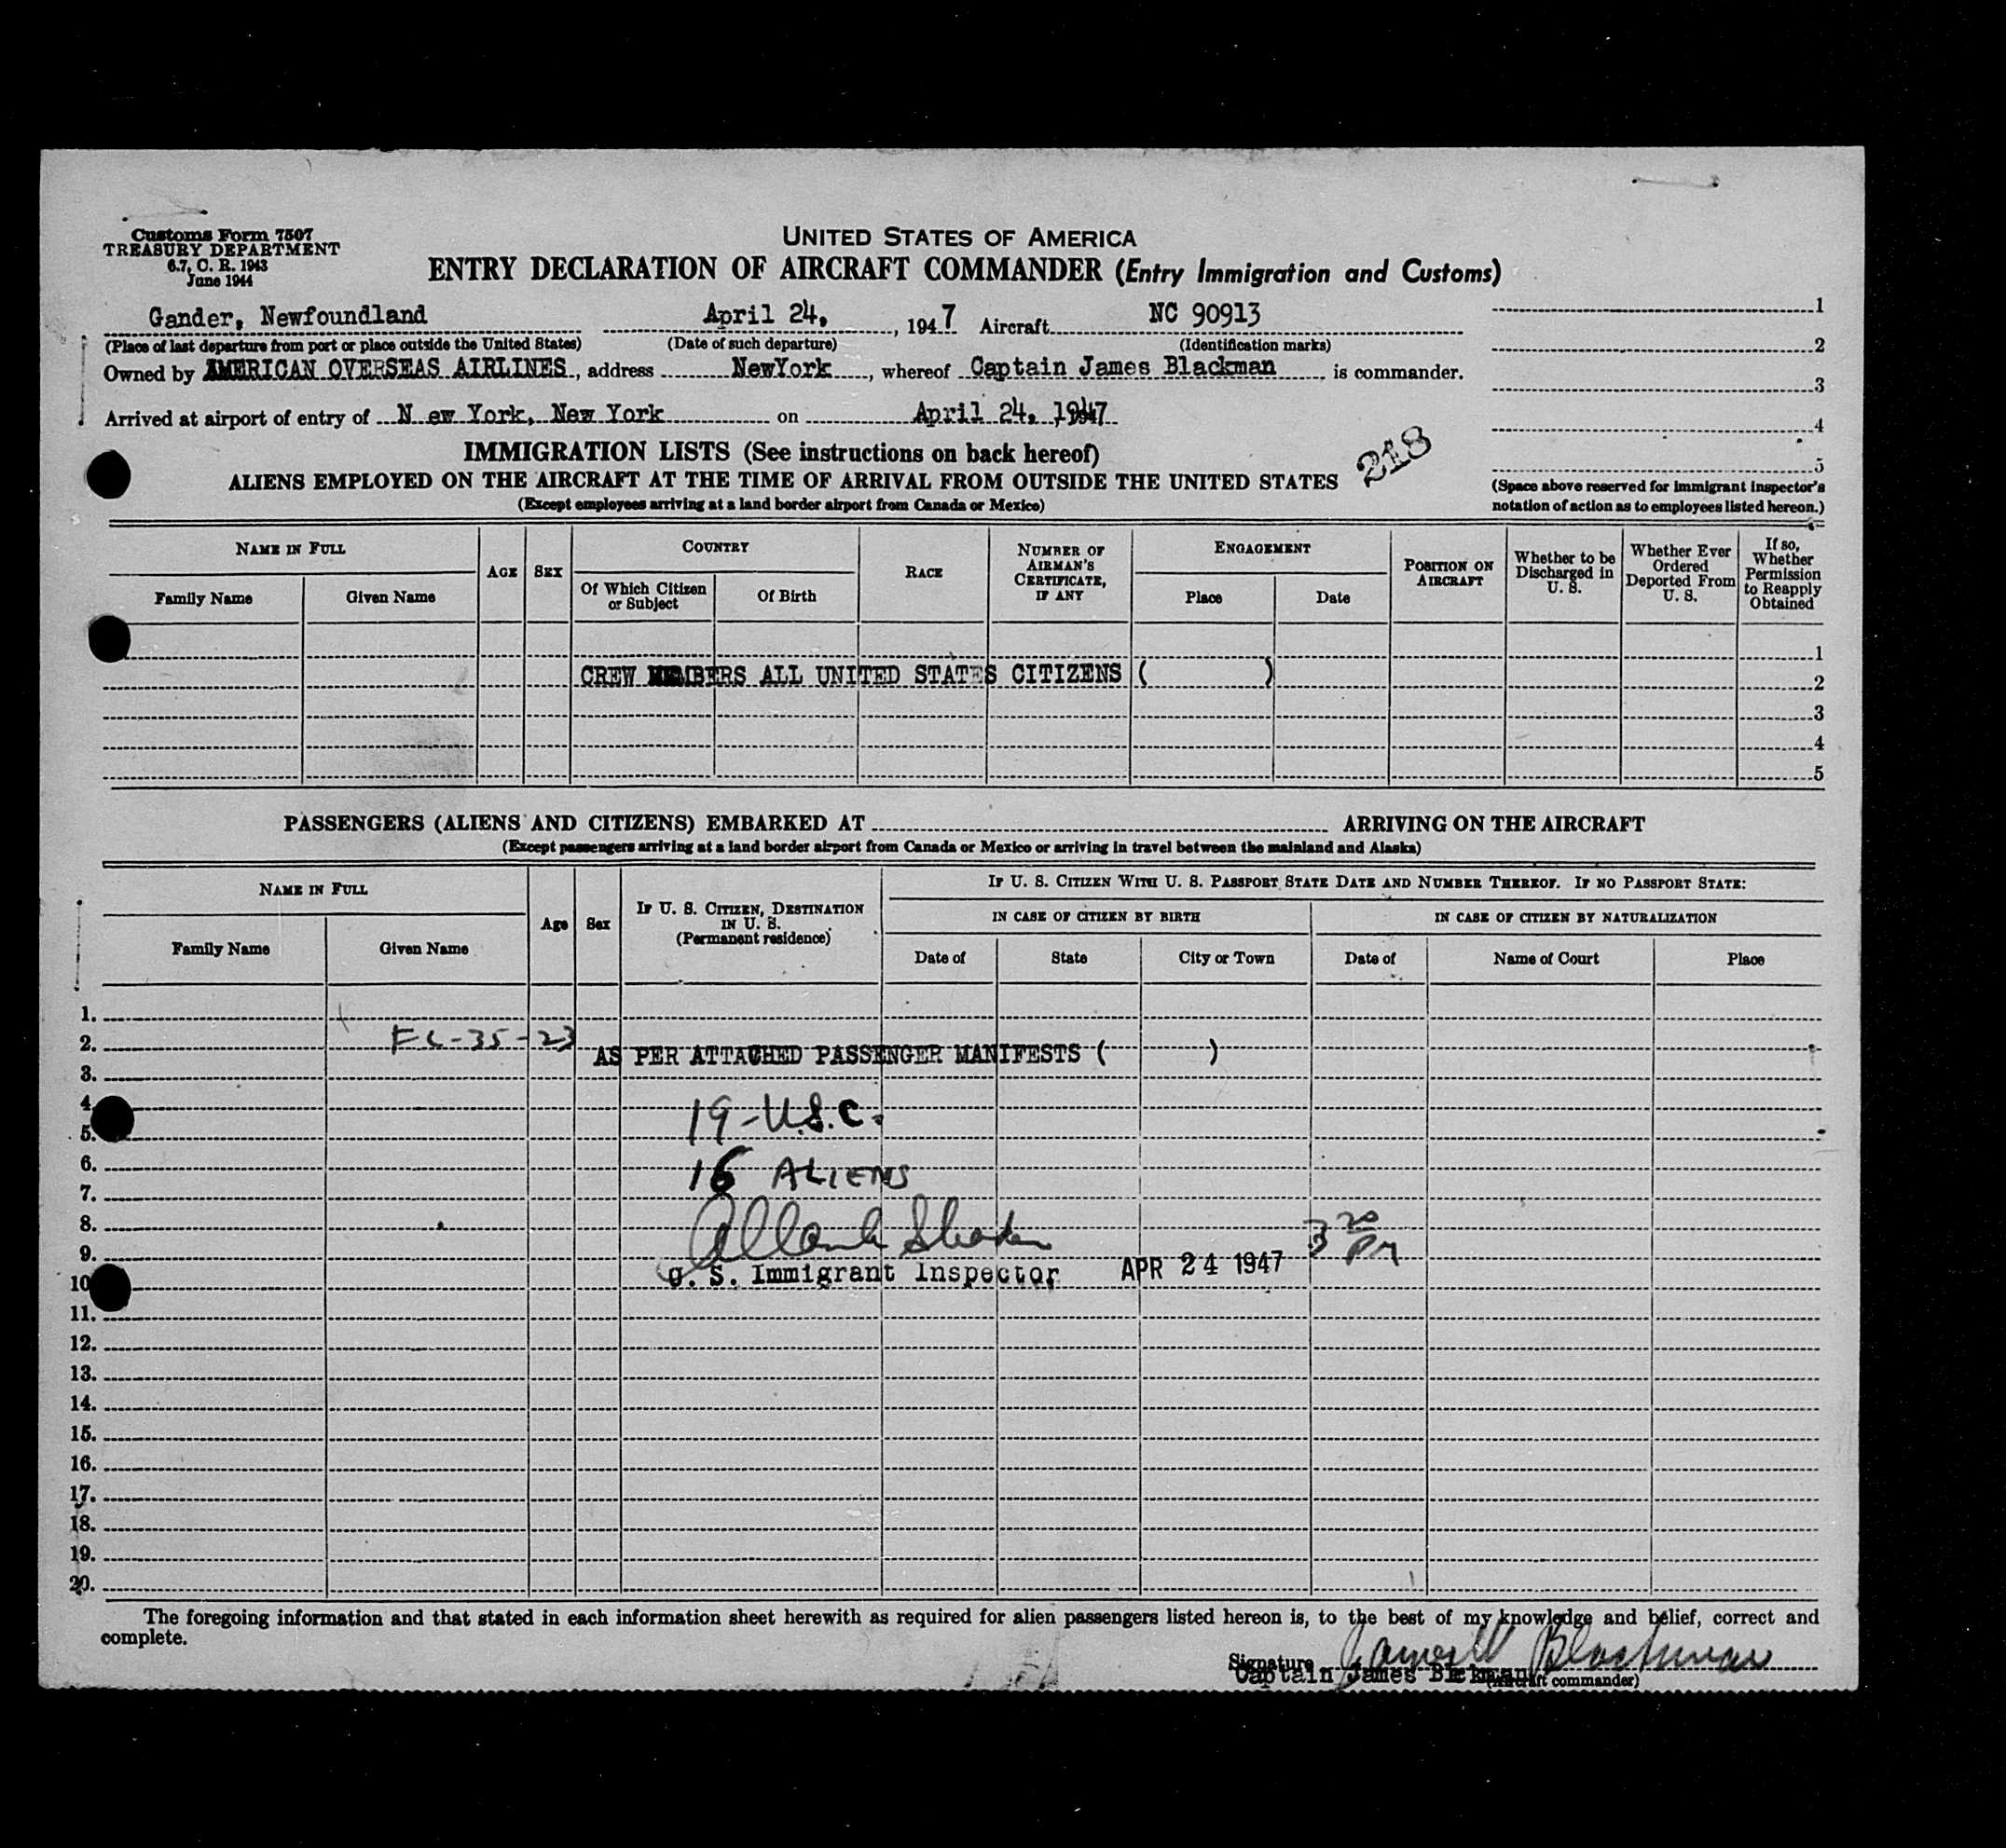 Customs Form 7507
TREASURY DEPARTMENT
6.7, C. R. 1943
June 1944
UNITED STATES OF AMERICA
ENTRY DECLARATION OF AIRCRAFT COMMANDER (Entry Immigration and Customs)
Gander, Newfoundland April 24, , 1947 Aircraft NC 90913
(Place of last departure from port or place outside the United States) (Date of such departure) (Identification marks)
Owned by AMERICAN OVERSEAS AIRLINES, address NewYork, whereof Captain James Blackman is commander.
Arrived at airport of entry of N ew York, New York on April 24, 1947
1
2
3
4
5
(Space above reserved for immigrant inspector's
notation of action as to employees listed hereon.)
IMMIGRATION LISTS (See instructions on back hereof)
218
ALIENS EMPLOYED ON THE AIRCRAFT AT THE TIME OF ARRIVAL FROM OUTSIDE THE UNITED STATES
(Except employees arriving at a land border airport from Canada or Mexico)
NAME IN FULL
Family Name
Given Name
AGE
SEX
COUNTRY
Of Which Citizen
or Subject
Of Birth
RACE
NUMBER OF
AIRMAN'S
CERTIFICATE,
IF ANY
ENGAGEMENT
Place
Date
POSITION ON
AIRCRAFT
Whether to be
Discharged in
U. S.
Whether Ever
Ordered
Deported From
U. S.
If so,
Whether
Permission
to Reapply
Obtained
1
CREW MEMBERS ALL UNITED STATES CITIZENS ( ) 2
3
4
5
PASSENGERS (ALIENS AND CITIZENS) EMBARKED AT ARRIVING ON THE AIRCRAFT
(Except passengers arriving at a land border airport from Canada or Mexico or arriving in travel between the mainland and Alaska)
NAME IN FULL
Family Name
Given Name
Age
Sex
IF U. S. CITIZEN, DESTINATION
IN U. S.
(Permanent residence)
IF U. S. CITIZEN WITH U. S. PASSPORT STATE DATE AND NUMBER THEREOF. IF NO PASSPORT STATE:
IN CASE OF CITIZEN BY BIRTH
Date of
State
City or Town
IN CASE OF CITIZEN BY NATURALIZATION
Date of
Name of Court
Place
1.
2. FL-35-23
AS PER ATTACHED PASSENGER MANIFESTS ( )
3.
4. 19-U.S.C.
5.
6. 16 ALIENS
7.
8. 3 20 PM
9.
U. S. Immigrant Inspector APR 24 1947
10
11.
12.
13.
14.
15.
16.
17.
18.
19.
20.
The foregoing information and that stated in each information sheet herewith as required for alien passengers listed hereon is, to the best of my knowledge and belief, correct and
complete.
Signature James W Blackman
Captain James Blckman
(Aircraft commander)